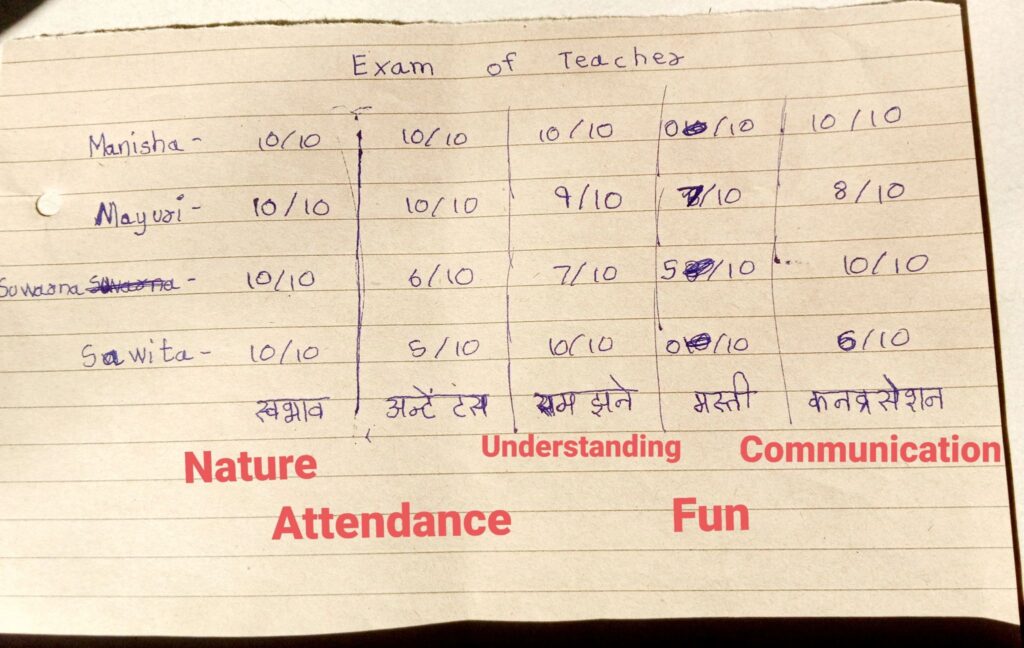 Exam of Teacher
Manisha - 10/10 10/10 10/10 0/10 10/10
Mayuri - 10/10 10/10 9/10 7/10 8/10
Suwarna - 10/10 6/10 7/10 5/10 10/10
Sawita - 10/10 5/10 10/10 0/10 6/10
स्वभाव अन्टेंटंस समझने मस्ती कनव्रसेशन
Understanding Communication
Nature
Attendance Fun